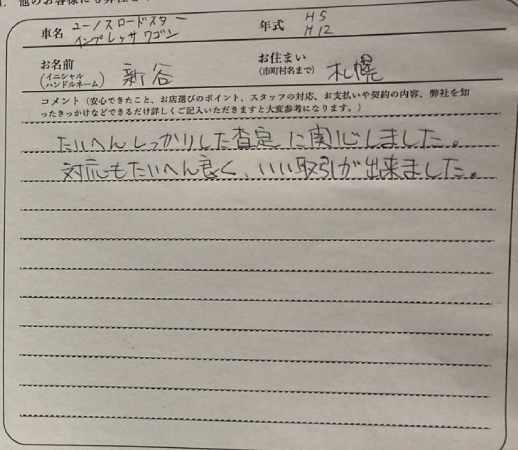 他のお客様にも弊社
車名 ユーノスロードスター 年式 H5
インプレッサワゴン H12
お名前 (イニシャル ハンドルネーム) 新谷 お住まい (市町村名まで) 札幌
コメント(安心できたこと、お店選びのポイント、スタッフの対応、お支払いや契約の内容、弊社を知
ったきっかけなどできるだけ詳しくご記入いただきますと大変参考になります。)
たいへんしっかりした査定に関心しました。
対応もたいへん良く、いい取引が出来ました。